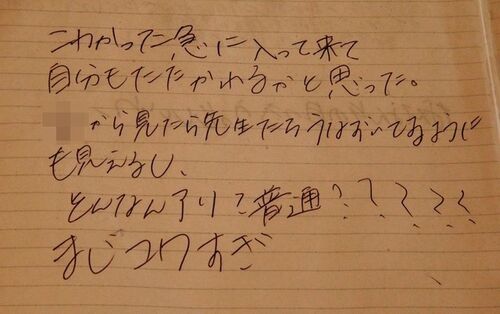 こわかった急に入って来て
自分もたたかれるかと思った。
から見たら先生たろうばおいてるように
も見えるし、
とんなんアリ?普通?????
まじコワすぎ